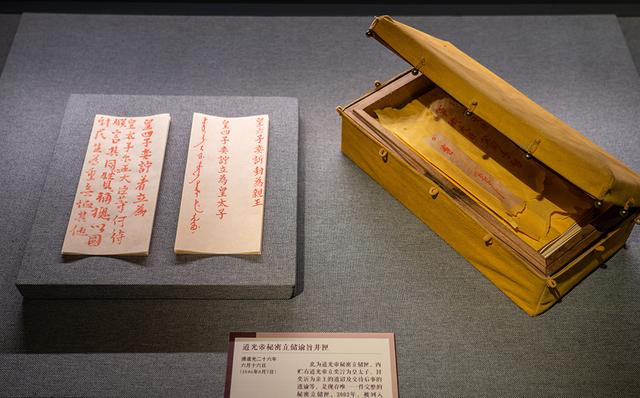 皇四子奕詝着立為
皇太子尔王大臣等何待
朕言其同心贊輔總以國
計民生為重無恤其他
皇六子奕訢封為親王
皇四子奕詝立為皇太子
道光帝秘密立储谕旨并匣
清道光二十六年
六月十六日
(1846年8月7日)
此为道光帝秘密立储匣，内
贮有道光帝立奕詝为皇太子、封
奕訢为亲王的遗诏及交待后事的
遗谕等，是现存唯一一件完整的
秘密立储匣。2002年，被列入